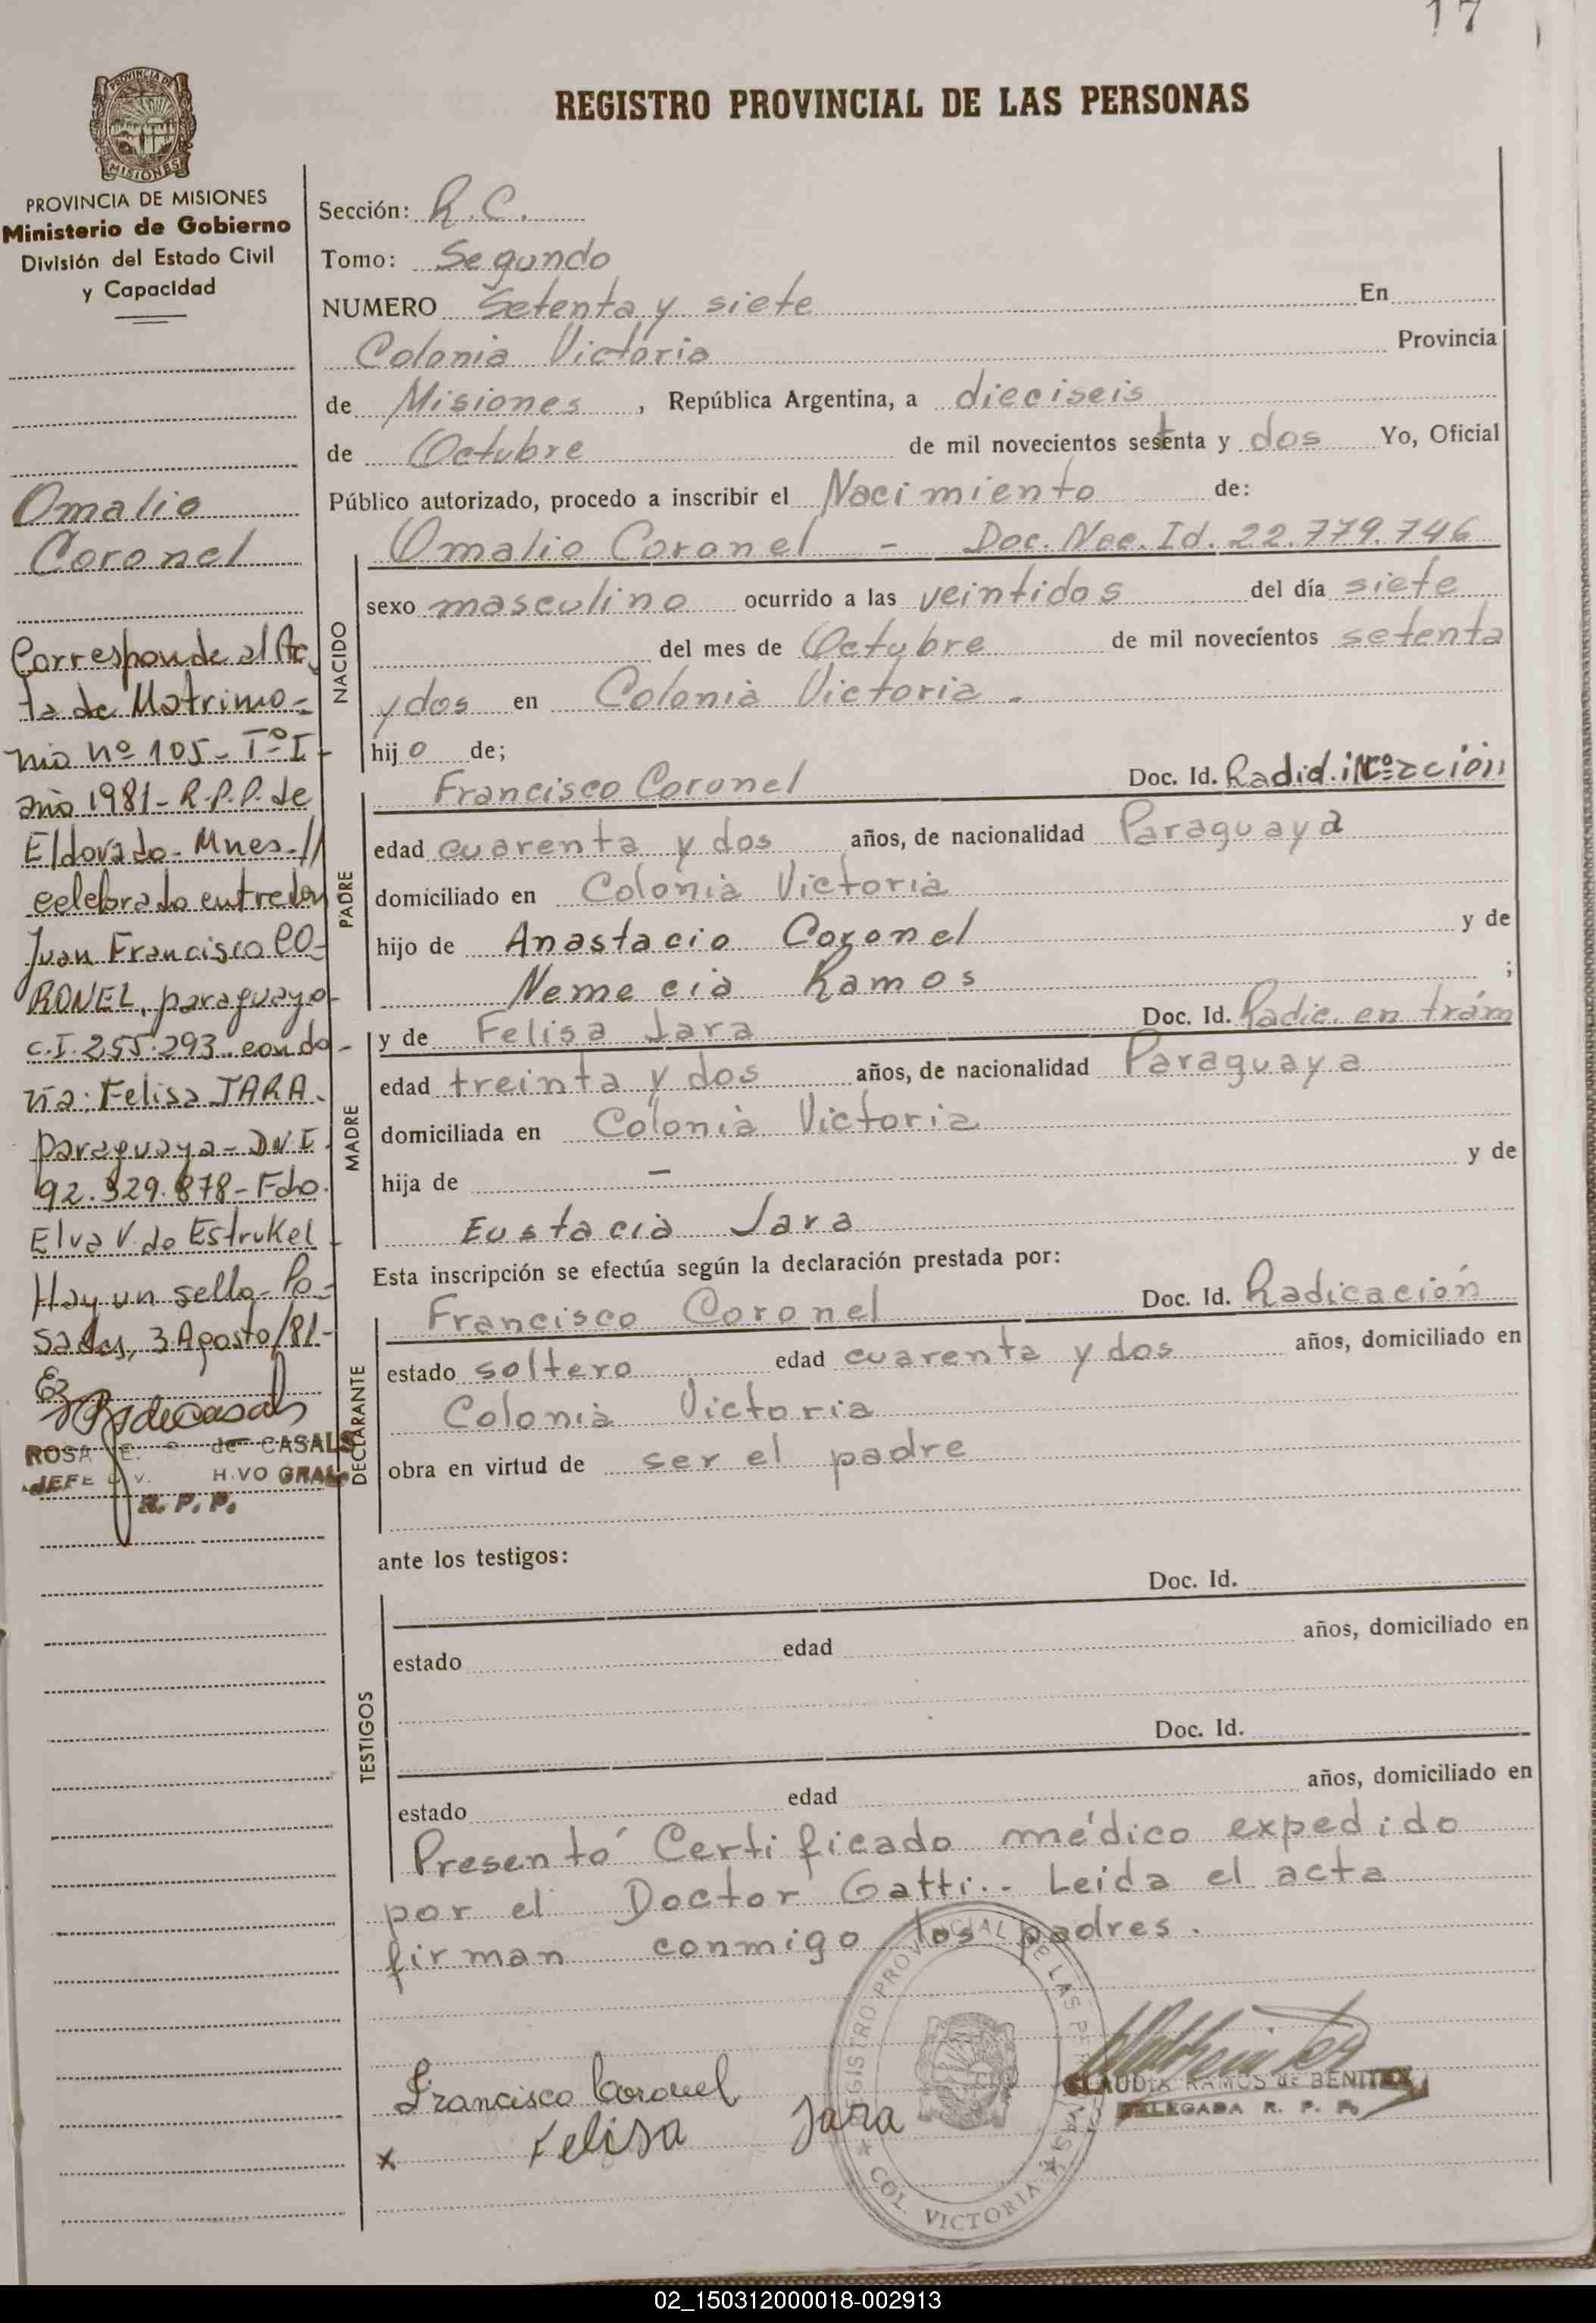 17
REGISTRO PROVINCIAL DE LAS PERSONAS
PROVINCIA DE
MISIONES
PROVINCIA DE MISIONES
Ministerio de Gobierno
División del Estado Civil
y Capacidad
Omalio
Coronel
Corresponde al Ac
ta de Matrimo-
nio nº 105- Tº I-
año 1981- R.P.P. de
Eldorado- Mnes-//
celebrado entre don
Juan Francisco CO-
RONEL, paraguayo-
C.I. 255.293. con do-
ña: Felisa JARA-
paraguaya- DNI.
92.329.878- Fdo.
Elva V. de Estrukel-
Hay un sello- Po-
sadas, 3 Agosto/81-
ROSA E. de CASALS
JEFE DIV. GRAL.
R. P. P.
Sección: R.C.
Tomo: Segundo
NUMERO Setenta y siete En
Colonia Victoria Provincia
de Misiones, República Argentina, a dieciseis
de Octubre de mil novecientos setenta y dos Yo, Oficial
Público autorizado, procedo a inscribir el Nacimiento de:
NACIDO
Omalio Coronel - Doc. Nac. Id. 22.779.746
sexo masculino ocurrido a las veintidos del día siete
del mes de Octubre de mil novecientos setenta
y dos en Colonia Victoria.-
hijo de;
PADRE
Francisco Coronel Doc. Id. Nº
edad cuarenta y dos años, de nacionalidad Paraguaya
domiciliado en Colonia Victoria
hijo de Anastacio Coronel y de
Nemecia Ramos ;
MADRE
y de Felisa Jara Doc. Id. Radic. en trám
edad treinta y dos años, de nacionalidad Paraguaya
domiciliada en Colonia Victoria
hija de — y de
Eustacia Jara
Esta inscripción se efectúa según la declaración prestada por:
DECLARANTE
Francisco Coronel Doc. Id. Radicación
estado soltero edad cuarenta y dos años, domiciliado en
Colonia Victoria
obra en virtud de ser el padre
ante los testigos:
TESTIGOS
Doc. Id.
estado edad años, domiciliado en
Doc. Id.
estado edad años, domiciliado en
Presentó Certificado médico expedido
por el Doctor Gatti.- Leida el acta
firman conmigo los padres.
REGISTRO PROVINCIAL DE LAS PERSONAS
COL. VICTORIA
Francisco Coronel
x Felisa Jara
CLAUDIA RAMOS de BENITEZ
DELEGADA R. P. P.
02_150312000018-002913